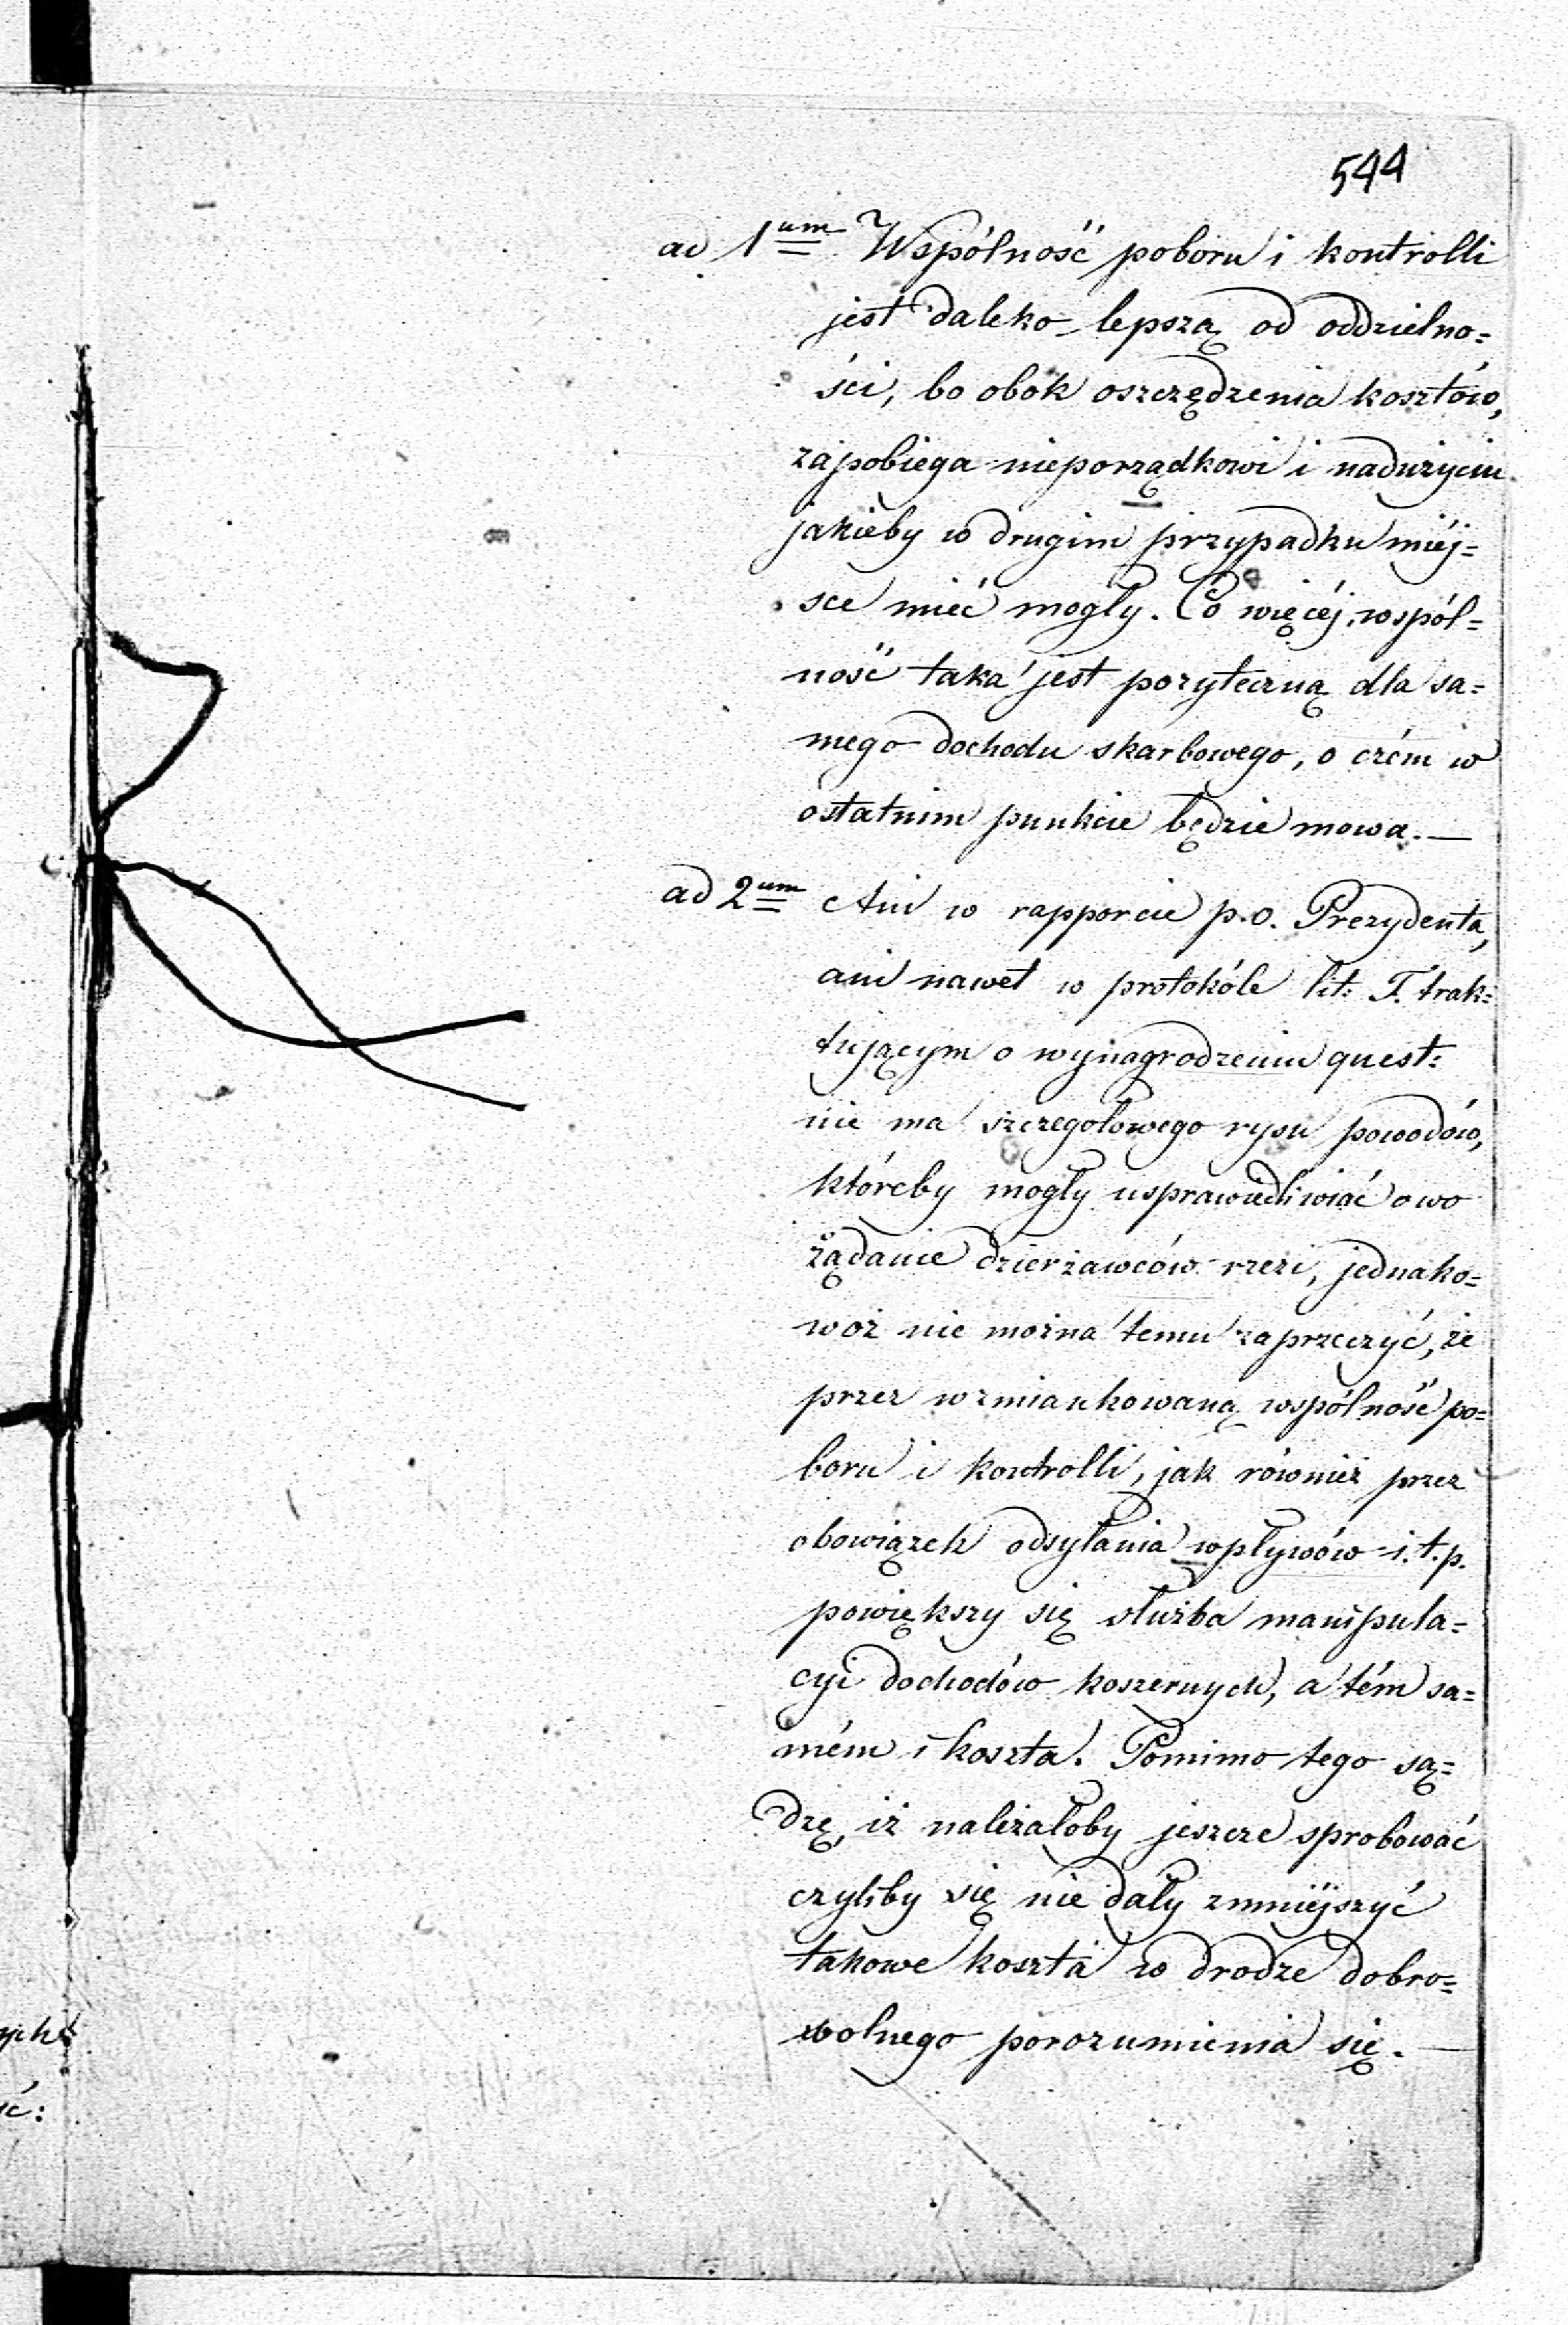 544
ad 1um Wspólność poboru i kontrolli
jest daleko lepszą od oddzielno=
ści, bo obok oszczędzenia kosztów,
zapobiega nieporządkowi i nadużyciu
jakieby w drugim przypadku miéj=
sce mieć mogły. Co więcéj, wspól=
ność taka jest pozyteczną dla sa=
mego dochodu skarbowego, o czém w
ostatnim punkcie będzie mowa. —
ad 2um Ani w rapporcie p.o. Prezydenta,
ani nawet w protokóle lit: F. trak=
tującym o wynagrodzeniu quest:
nie ma szczegołowego rysu powodów,
któreby mogły usprawiedliwiać owo
żądanie dzierżawców rzezi, jednako=
woż nie można temu zaprzeczyć, że
przez wzmiankowaną wspólność po=
boru i kontrolli, jak również przez
obowiązek odsyłania wpływów i.t.p.
powiększy się służba manipula=
cyi dochodów koszernych, a tém sa=
mém i koszta. Pomimo tego są=
dzę, iż należałoby jeszcze sprobować
czyliby się nie dały zmniejszyć
takowe koszta w drodze dobro=
wolnego porozumienia się. —
ych
ić: